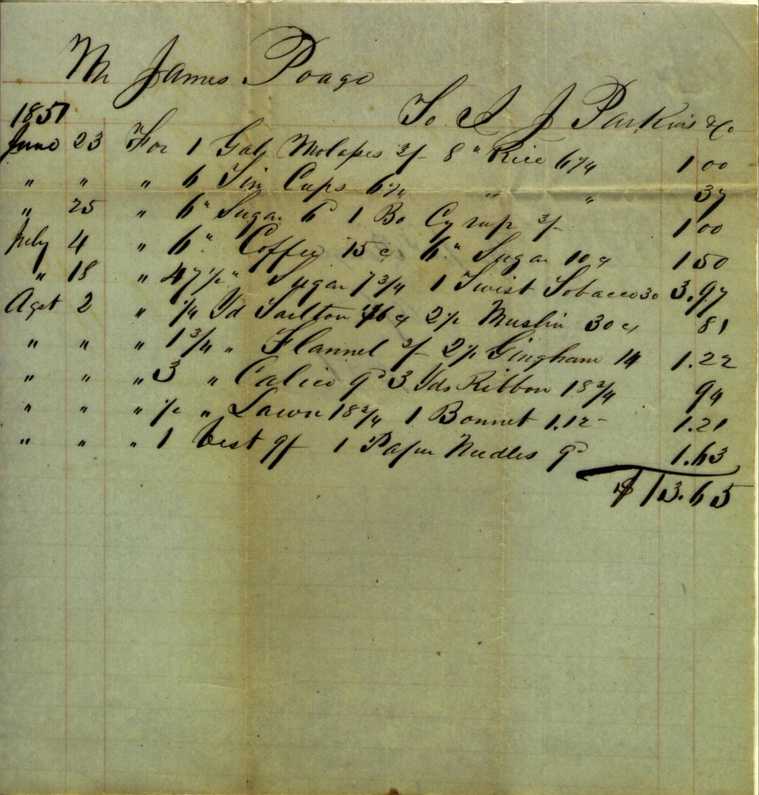 Mr James Poage
To S J Parkins & Co
1851
June 23 For 1 Galn Molasses 3/- 8 " Rice 6¼ 1 00
" " " 6 Tin Cups 6¼ " " 37
" 25 " 6 " Sugar 6d 1 Bo Cyrup 3/- 1 00
July 4 " 6 " Coffee 15 c 6 " Sugar 10 c 1 50
" 18 " 47½ " Sugar 7¾ 1 Twist Tobacco 30 3.97
Agst 2 " ¼ Yd 2 Muslin 30 c 81
" " " 1¾ " Flannel 2 Gingham 14 1.22
" " " 3 " Calico 9d 3 Yds Ribbon 18¾ 94
" " " ½ " Lawn 18¾ 1 Bonnet 1.12 1.21
" " " 1 Vest 9/- 1 Paper Needles 9d 1.63
$ 13.65